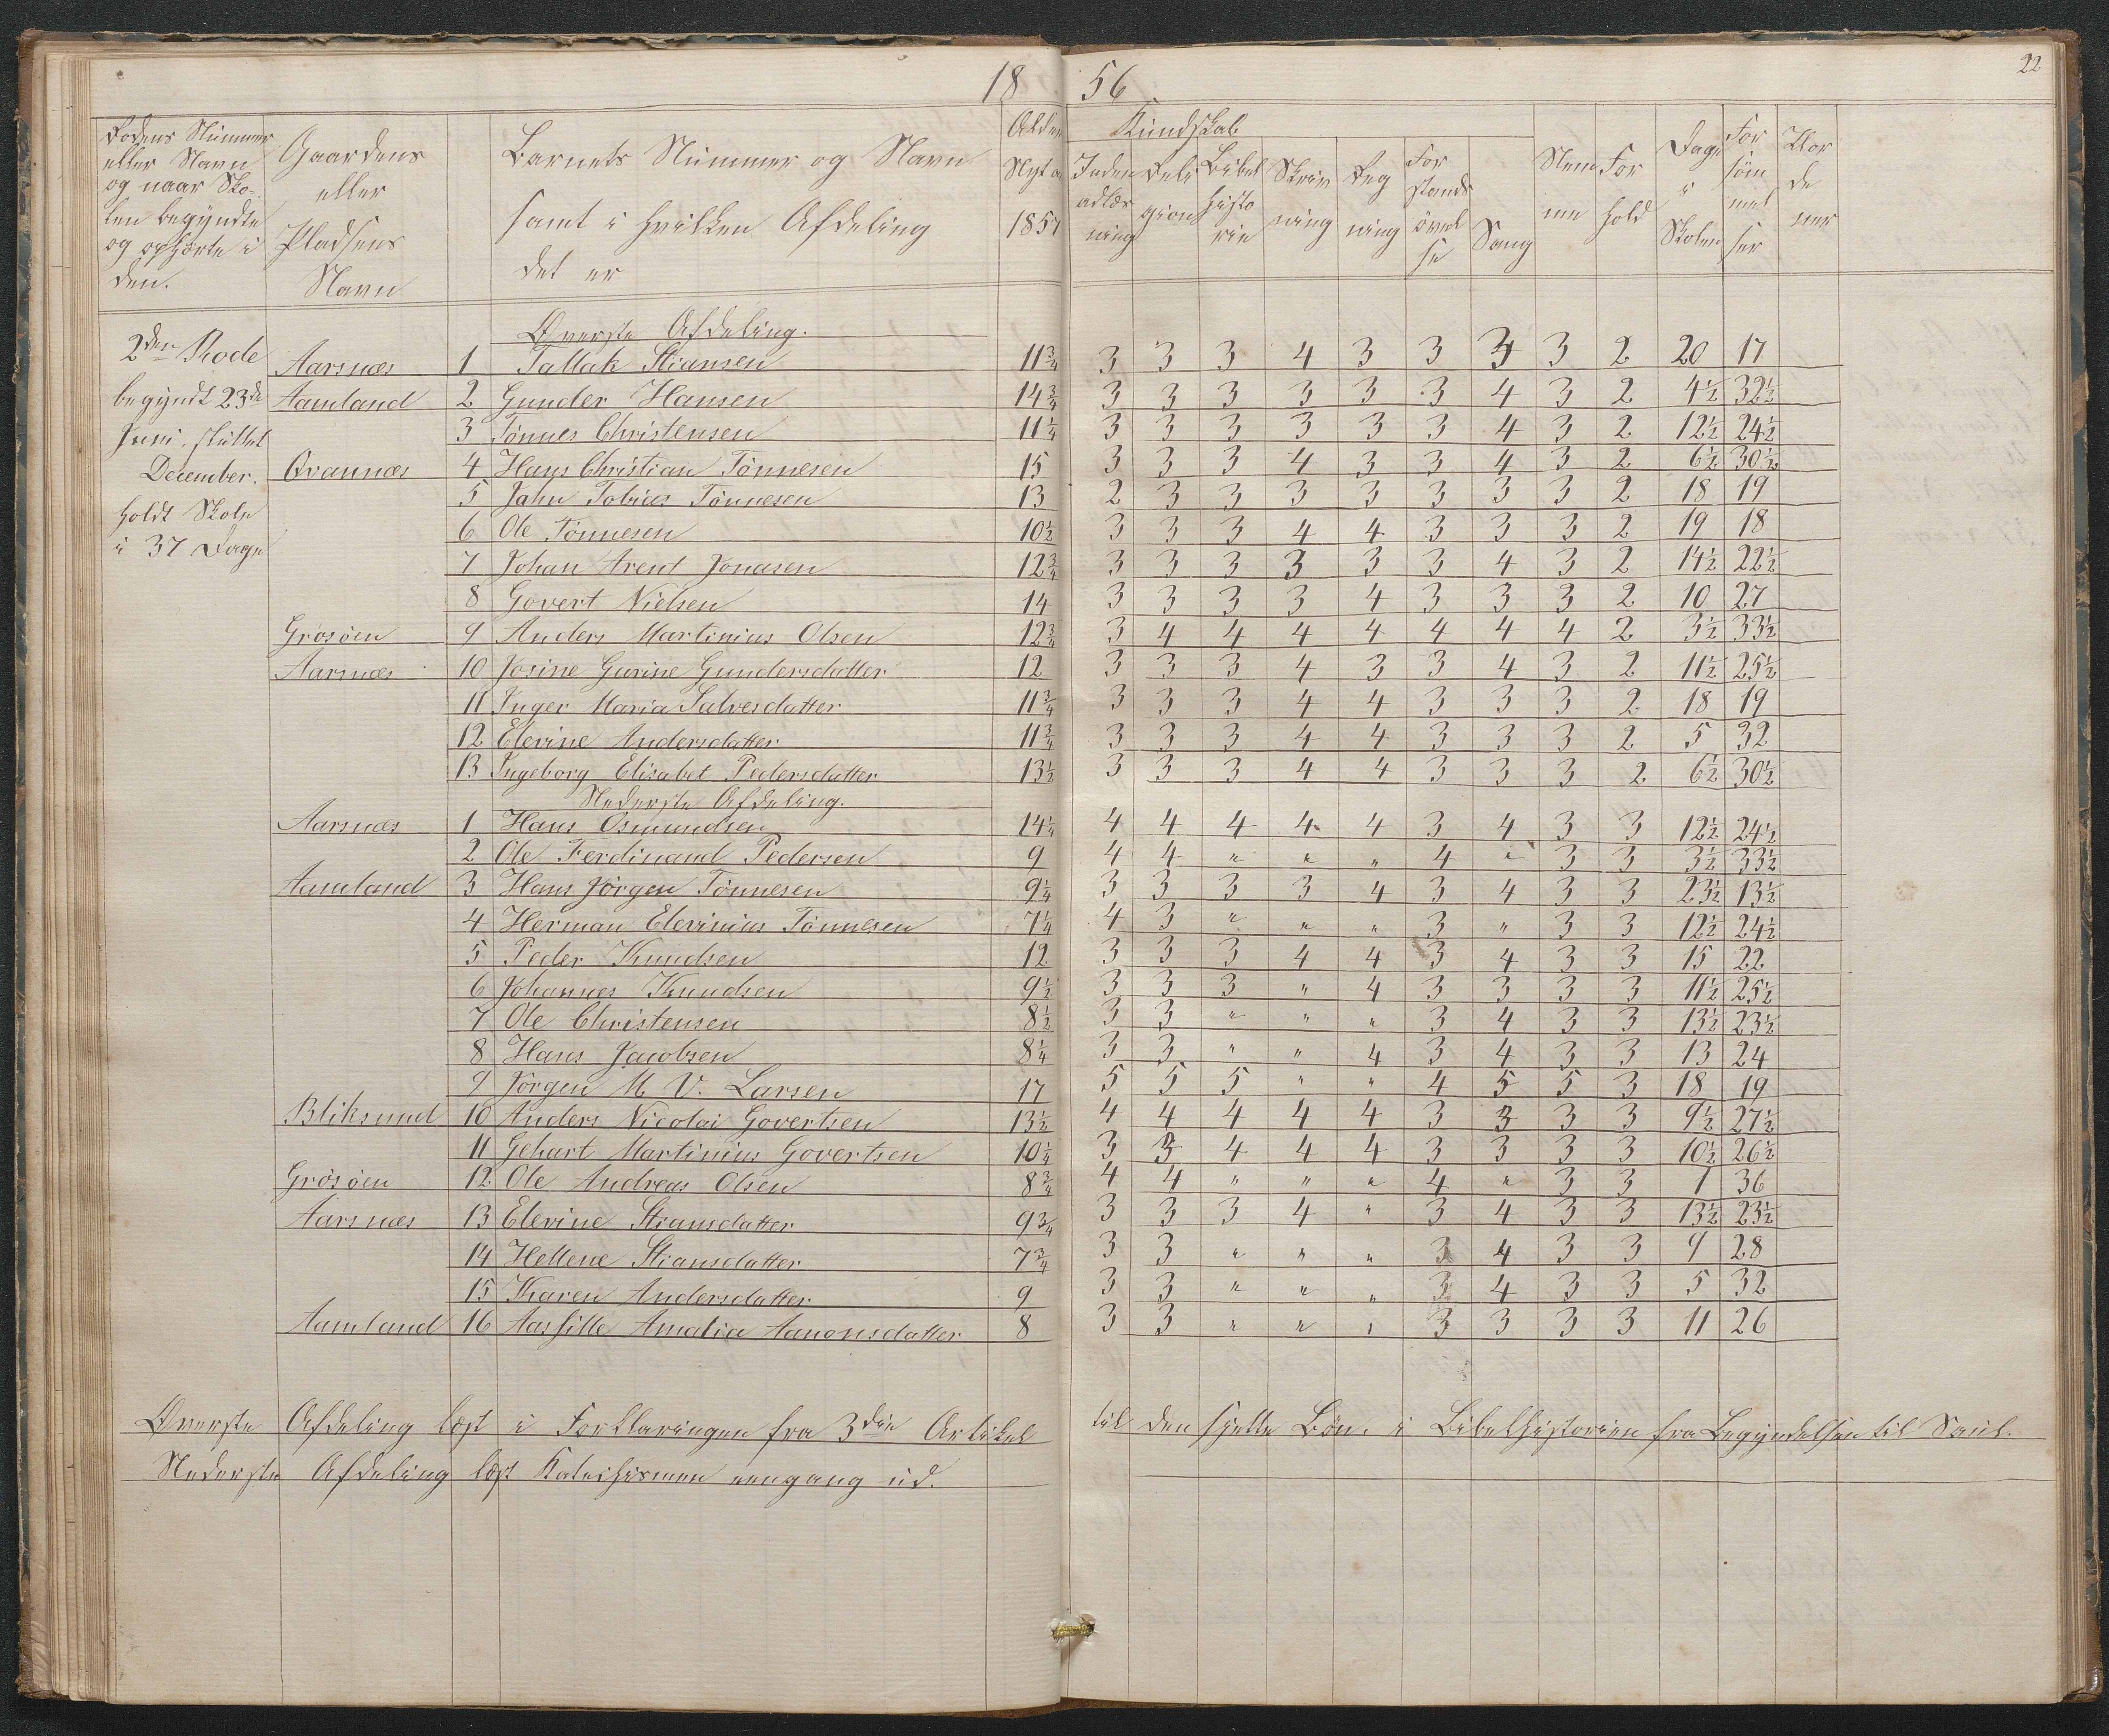 18 56
22
Rodens Nummer eller Navn og naar Skolen begyndte og ophørte i den.
Gaardens eller Pladsens Navn
Barnets Nummer og Navn samt i hvilken Afdeling det er
Alder Nyt aar 1857
Kundskab
Indenadlæsning
Religion
Bibelhistorie
Skrivning
Regning
Forstandsøvelse
Sang
Nemme
Forhold
Dage i Skolen
Forsømmelser
Øverste Afdeling.
2den Rode
begyndt 23de
Juni. sluttet
December.
holdt Skole
i 37 Dage
Aarsnæs 1 Tallak Stiansen 11¾ 3 3 3 4 3 3 3 3 2 20 17
Aamland 2 Gunder Hansen 14¾ 3 3 3 3 3 3 4 3 2 4½ 32½
3 Tönnes Christensen 11¼ 3 3 3 3 3 3 4 3 2 12½ 24½
Qvannæs 4 Hans Christian Tönnesen 15 3 3 3 4 3 3 4 3 2 6½ 30½
5 Jahn Tobias Tönnesen 13 2 3 3 3 3 3 3 3 2 18 19
6 Ole Tönnesen 10½ 3 3 3 4 4 3 3 3 2 19 18
7 Johan Arent Jonasen 12¾ 3 3 3 3 3 3 4 3 2 14½ 22½
8 Govert Nielsen 14 3 3 3 3 4 3 3 3 2 10 27
Grösöen 9 Anders Martinius Olsen 12¾ 3 4 4 4 4 4 4 4 2 3½ 33½
Aarsnæs 10 Josine Gurine Gundersdatter 12 3 3 3 4 3 3 4 3 2 11½ 25½
11 Inger Maria Salvesdatter 11¾ 3 3 3 4 4 3 3 3 2 18 19
12 Elevine Andersdatter 11¾ 3 3 3 4 4 3 3 3 2 5 32
13 Ingeborg Elisabet Pedersdatter 13½ 3 3 3 4 4 3 3 3 2 6½ 30½
Nederste Afdeling.
Aarsnæs 1 Hans Osmundsen 14¼ 4 4 4 4 4 3 4 3 3 12½ 24½
2 Ole Ferdinand Pedersen 9 4 4 " " " 4 " 3 3 3½ 33½
Aamland 3 Hans Jörgen Tönnesen 9¼ 3 3 3 3 4 3 4 3 3 23½ 13½
4 Herman Elevinius Tönnesen 7¼ 4 3 " " " 3 " 3 3 12½ 24½
5 Peder Knudsen 12 3 3 3 4 4 3 4 3 3 15 22
6 Johannes Knudsen 9½ 3 3 3 " 4 3 3 3 3 11½ 25½
7 Ole Christensen 8½ 3 3 " " " 3 4 3 3 13½ 23½
8 Hans Jacobsen 8¼ 3 3 " " 4 3 4 3 3 13 24
9 Jörgen M. V. Larsen 17 5 5 5 " " 4 5 5 3 18 19
Bliksund 10 Anders Nicolai Govertsen 13½ 4 4 4 4 4 3 3 3 3 9½ 27½
11 Gehart Martinius Govertsen 10¼ 3 3 4 4 4 3 3 3 3 10½ 26½
Grösöen 12 Ole Andreas Olsen 8¾ 4 4 " " " 4 " 3 3 1 36
Aarsnæs 13 Elevine Stiansdatter 9¾ 3 3 3 4 " 3 4 3 3 13½ 23½
14 Hellene Stiansdatter 7¾ 3 3 " " " 3 4 3 3 9 28
15 Karen Andersdatter 9 3 3 " " " 3 4 3 3 5 32
Aamland 16 Aasille Amalia Aanonsdatter 8 3 3 " " " 3 3 3 3 11 26
Øverste Afdeling læst i Forklaringen fra 3die Artikel til den sjette Bön. i Bibelhistorien fra Begyndelsen til Saul.
Nederste Afdeling læst Katechismen eengang ud.